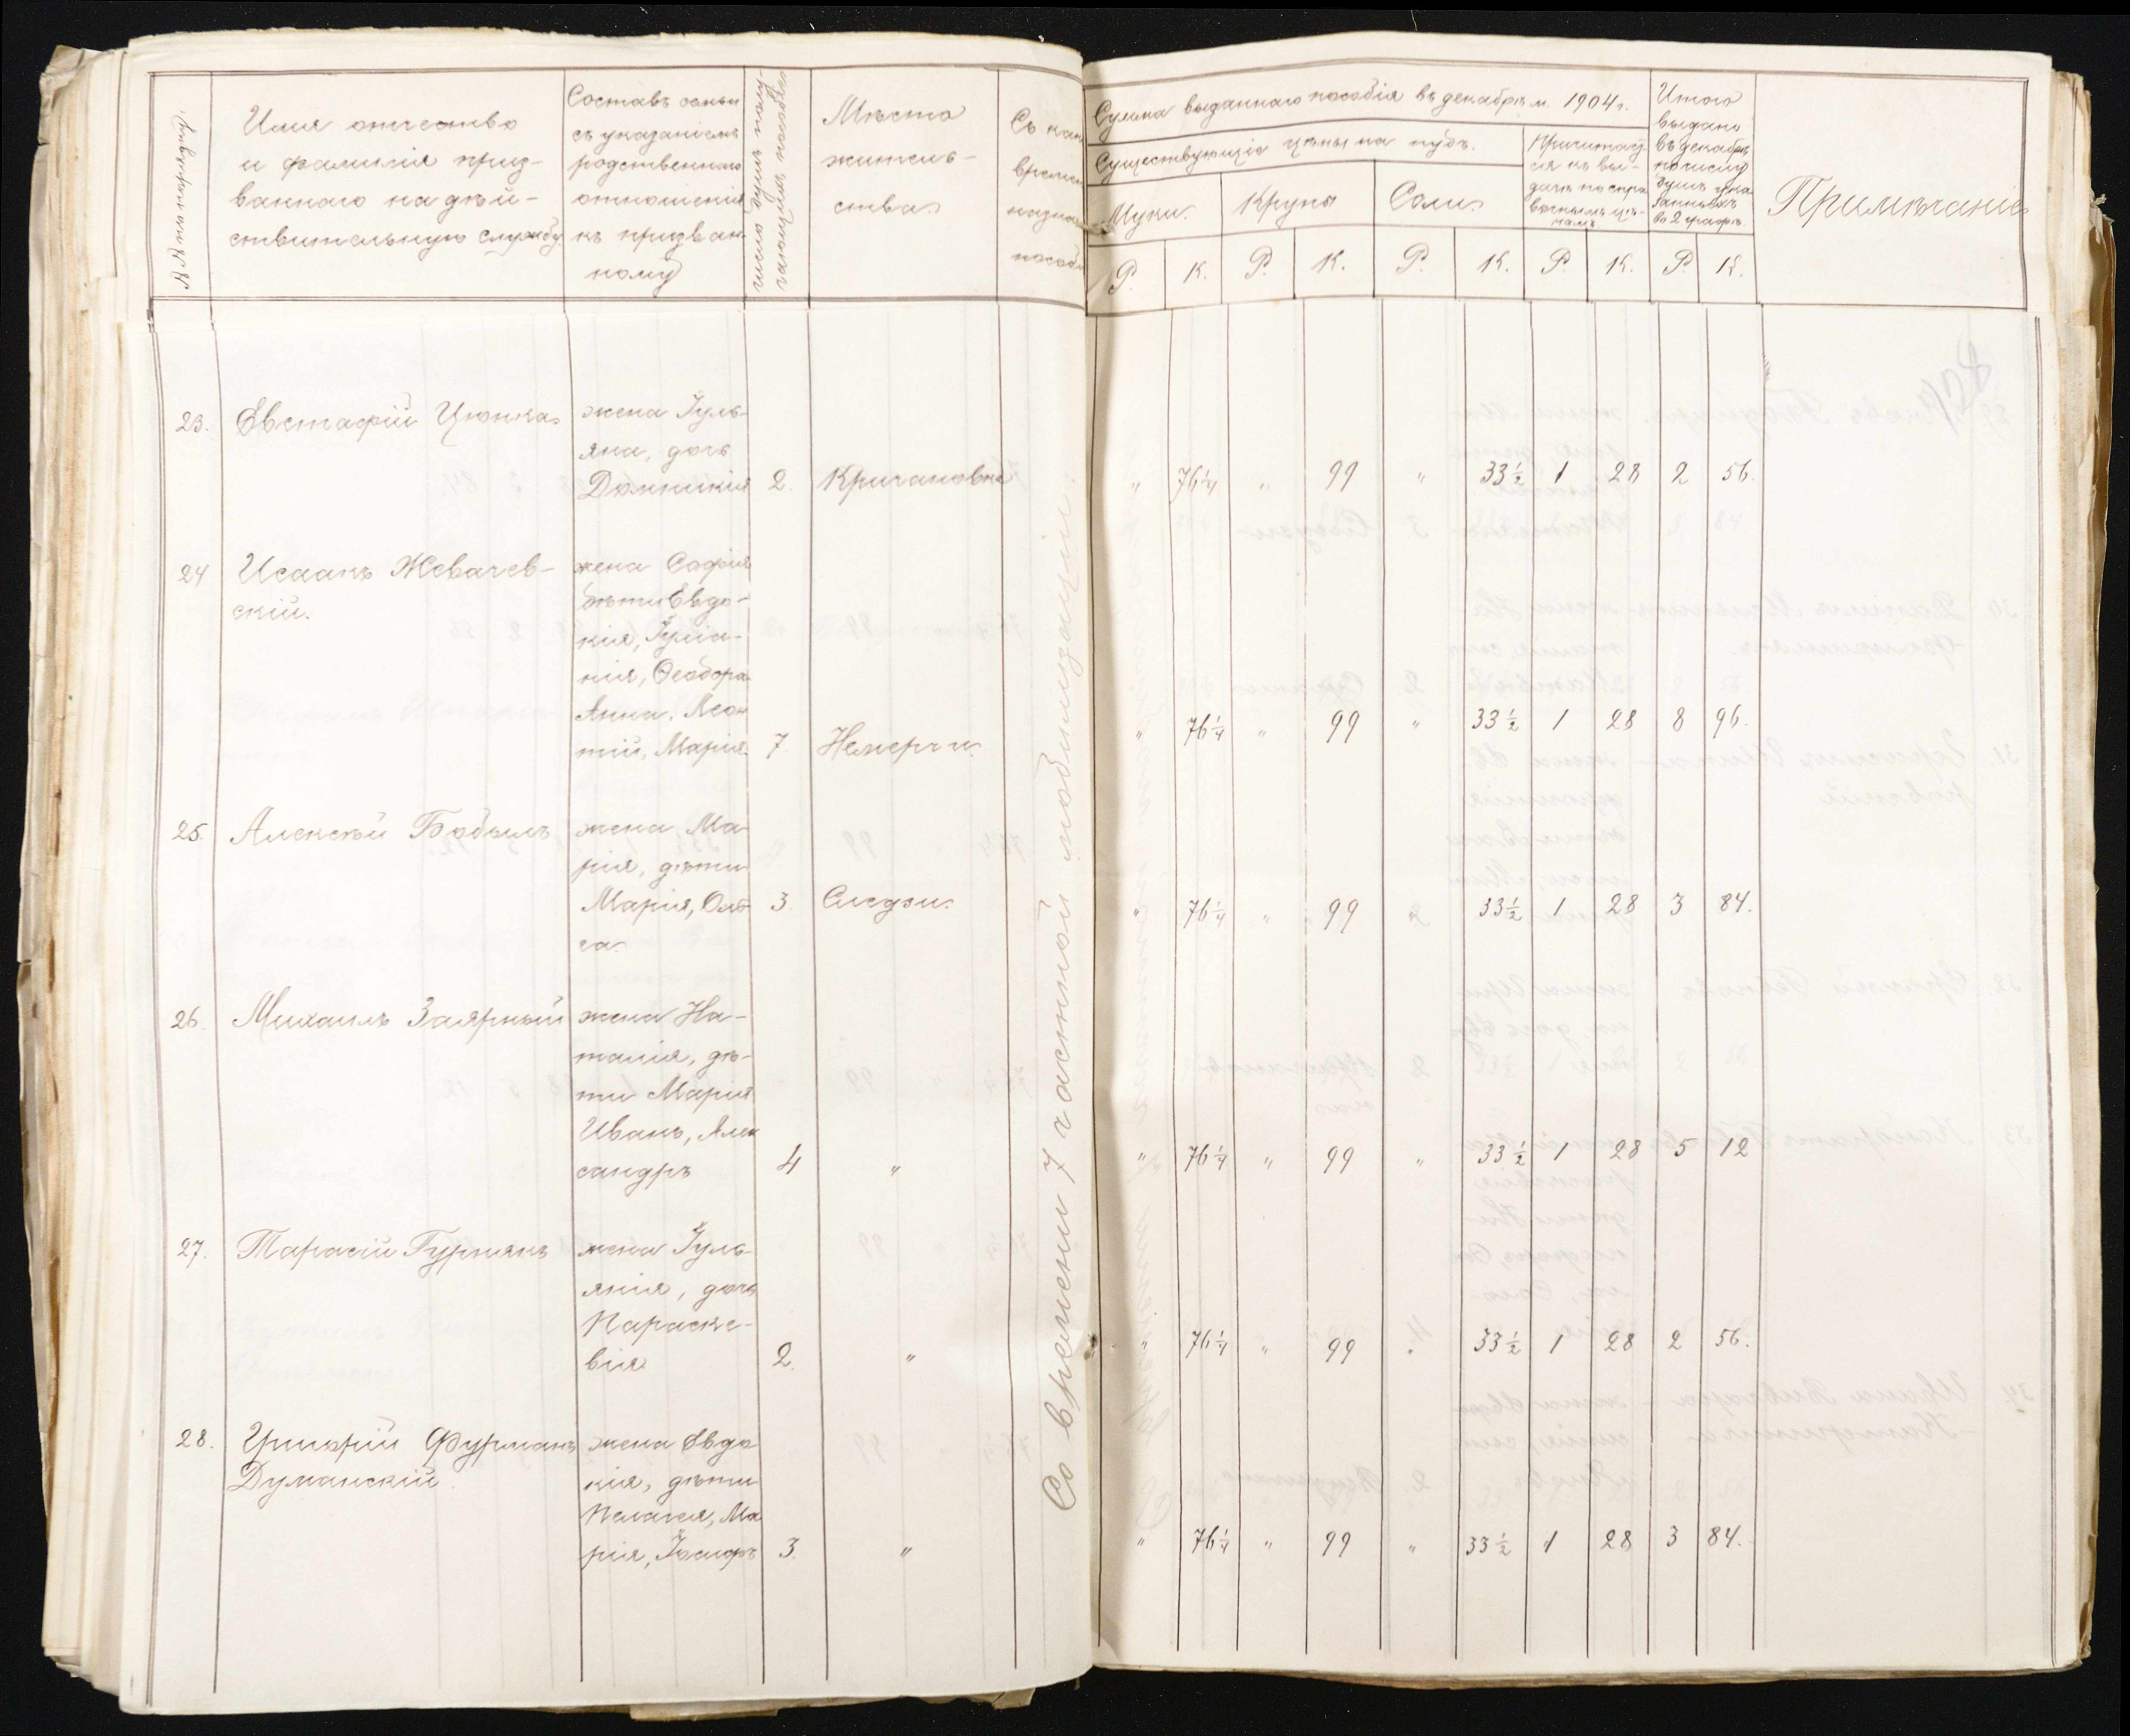 №№ по порядку
Имя отчество
и фамилія приз-
ваннаго на дѣй-
ствительную службу
Составъ семьи
съ указаніемъ
родственнаго
отношенія
къ призван-
ному
число душъ полу-
чающихъ пособіе
Мѣсто
житель-
ства
Съ как
времен
назнач
пособі
Сумма выданнаго пособія въ декабрѣ м. 1904 г.
Существующіе цѣны на пудъ.
Муки.
Крупы
Соли.
Причитаю
ся къ вы-
дачѣ по спра
вочнымъ цѣ-
намъ
Итого
выдано
въ декабрѣ
по числу
душъ ука
занныхъ
во 2 графѣ
Примѣчаніе
Р. К. Р. К. Р. К. Р. К. Р. К.
23. Евстафій Цюпка
жена Іуль-
яна, дочь
Домникія 2. Кричановка " 76 1/4 " 99 " 33 1/2 1 28 2 56.
24 Исаакъ Жевачев-
скій.
жена Софія
дѣти Евдо-
кія, Іуліа-
нія, Ѳеодора
Анна, Леон
тій, Марія. 7. Немерчи. " 76 1/4 " 99 " 33 1/2 1 28 8 96.
25. Алексѣй Бобылъ
жена Ма-
рія, дѣти
Марія, Оль- 3. Следзи. " 76 1/4 " 99 " 33 1/2 1 28 3 84.
га.
26. Михаилъ Заярный
жена На-
талія, дѣ-
ти Марія
Иванъ, Алек
сандръ 4 " " 76 1/4 " 99 " 33 1/2 1 28 5 12
27. Тарасій Гурнякъ
жена Іуль-
янія, дочь
Параске-
вія 2. " " 76 1/4 " 99 " 33 1/2 1 28 2 56.
28. Григорій Фурманъ
Думанскій.
жена Евдо
кія, дѣти
Пелагея, Ма
рія, 3. " " 76 1/4 " 99 " 33 1/2 1 28 3 84.
Со времени 7 частной мобилизаціи.